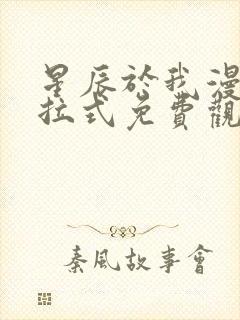 星辰於我漫
拉式免費觀
秦風故事會